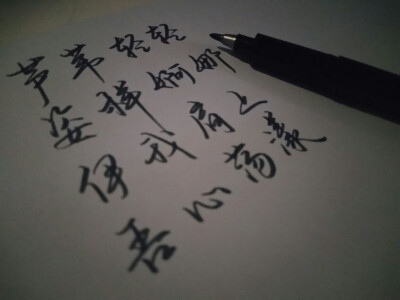 芦苇轻轻
姿样婀娜
伊我肩上
吾心荡漾